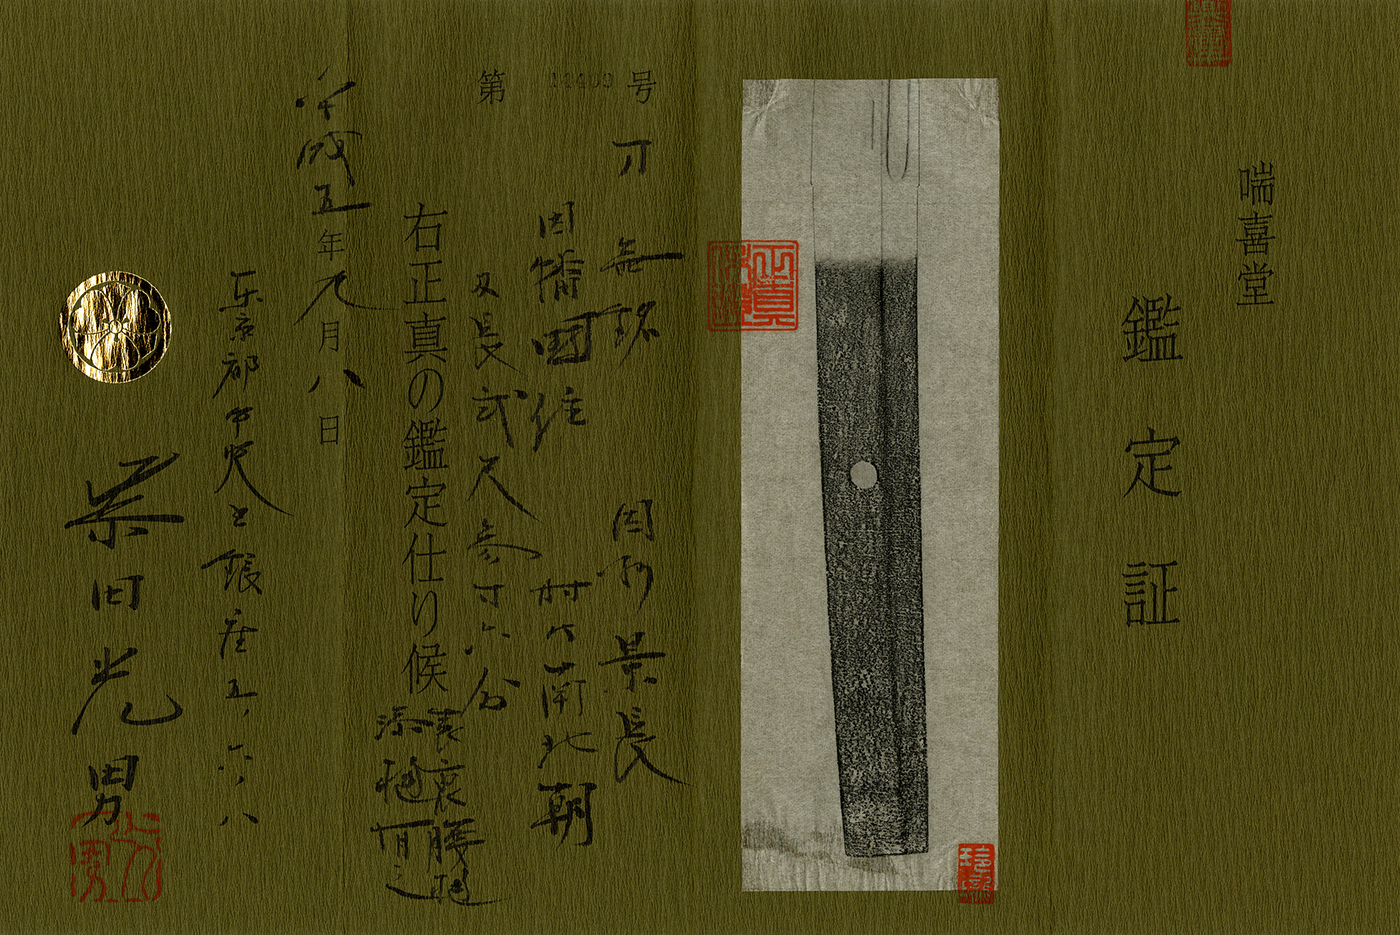 喘喜堂
鑑定証
第 号
刀 無銘 因州景長
因幡國住 時代南北朝
刃長弍尺参寸六分
右正真の鑑定仕り候
表裏腰樋
添樋有之
平成五年九月八日
東京都中央区銀座五ノ六ノ八
柴田光男
正真